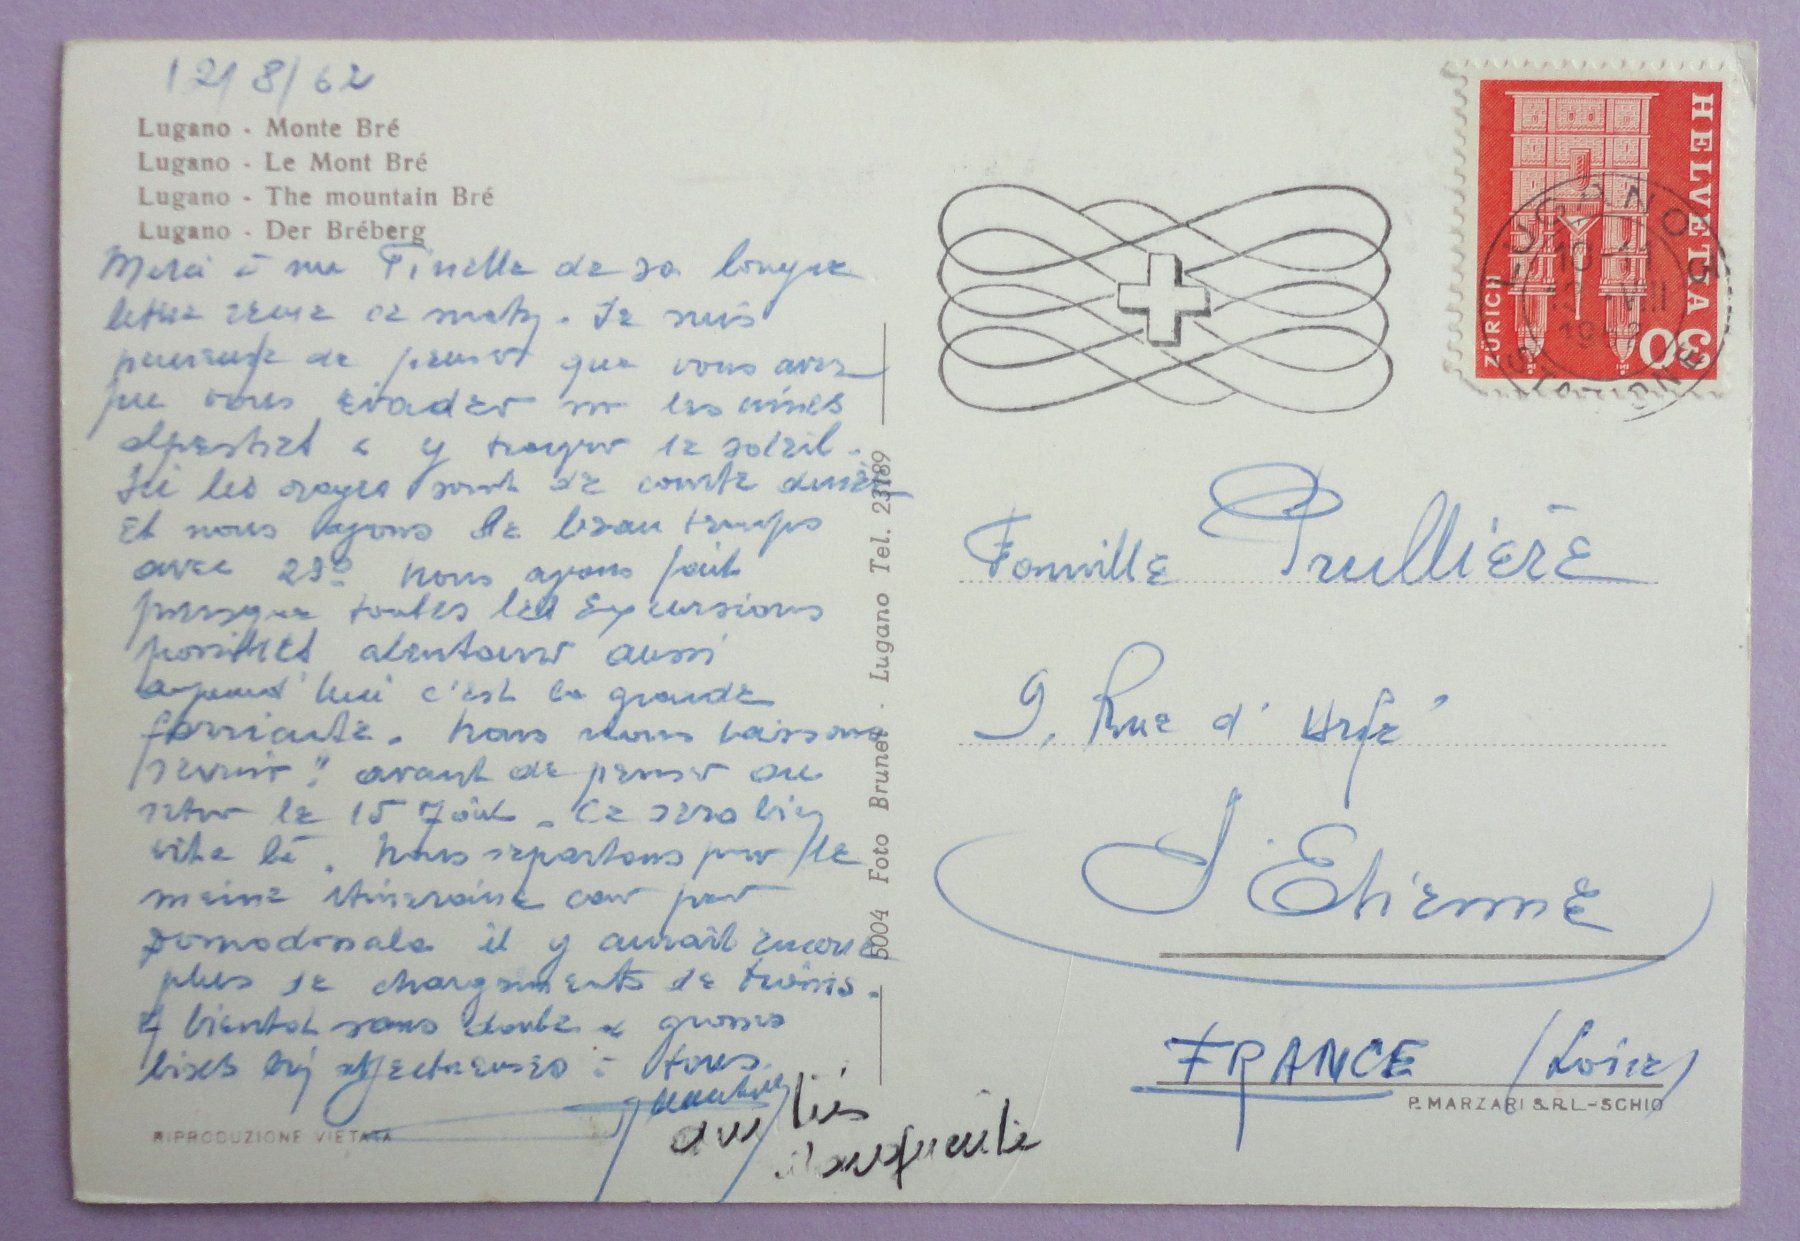 12/8/62
Lugano - Monte Bré
Lugano - Le Mont Bré
Lugano - The mountain Bré
Lugano - Der Bréberg
Merci à ma de sa longue
lettre ce matin. Je suis
de penser que vous avez
pu vous évader sur les cimes
alpestres & y trouver le soleil.
Ici les orages sont de courte durée
et nous ayons de beau temps
avec 23° nous ayons fait
presque toutes les Excursions
possibles alentours aussi
aujourd'hui c'est la grande
farniente. Nous nous laissons
avant de penser au
retour le 15 Août. Ce sera bien
vite là. Nous repartons par le
même itineraire car par
Domodossola il y aurait encore
plus de changements de trains.
A bientot sans doute & grosses
bises bien affectueuses à tous.
amitiés
Marguerite
RIPRODUZIONE VIETATA
5004 Foto Brunel - Lugano Tel. 23189
HELVETIA
ZÜRICH
30
LUGANO
1962
Famille Prullière
9, Rue d'Urfé
St Etienne
FRANCE (Loire)
P. MARZARI S.R.L.-SCHIO